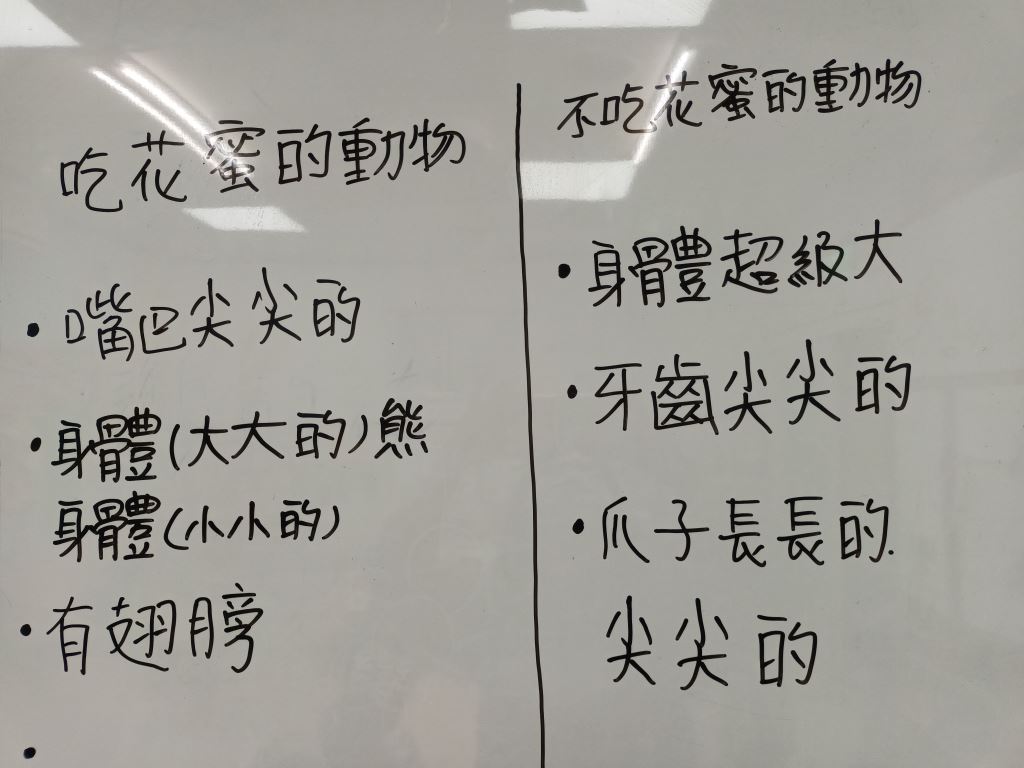 吃花蜜的動物
• 嘴巴尖尖的
• 身體(大大的)熊
身體(小小的)
• 有翅膀
•
不吃花蜜的動物
• 身體超級大
• 牙齒尖尖的
• 爪子長長的.
尖尖的